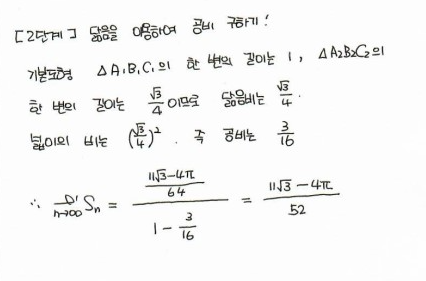 [2단계] 닮음을 이용하여 공비 구하기!
기본도형 △A₁B₁C₁의 한 변의 길이는 1, △A₂B₂C₂의
한 변의 길이는 √3/4 이므로 닮음비는 √3/4.
넓이의 비는 (√3/4)². 즉 공비는 3/16
∴ lim n→∞ Sₙ = ((11√3-4π)/64)/(1-3/16) = (11√3-4π)/52